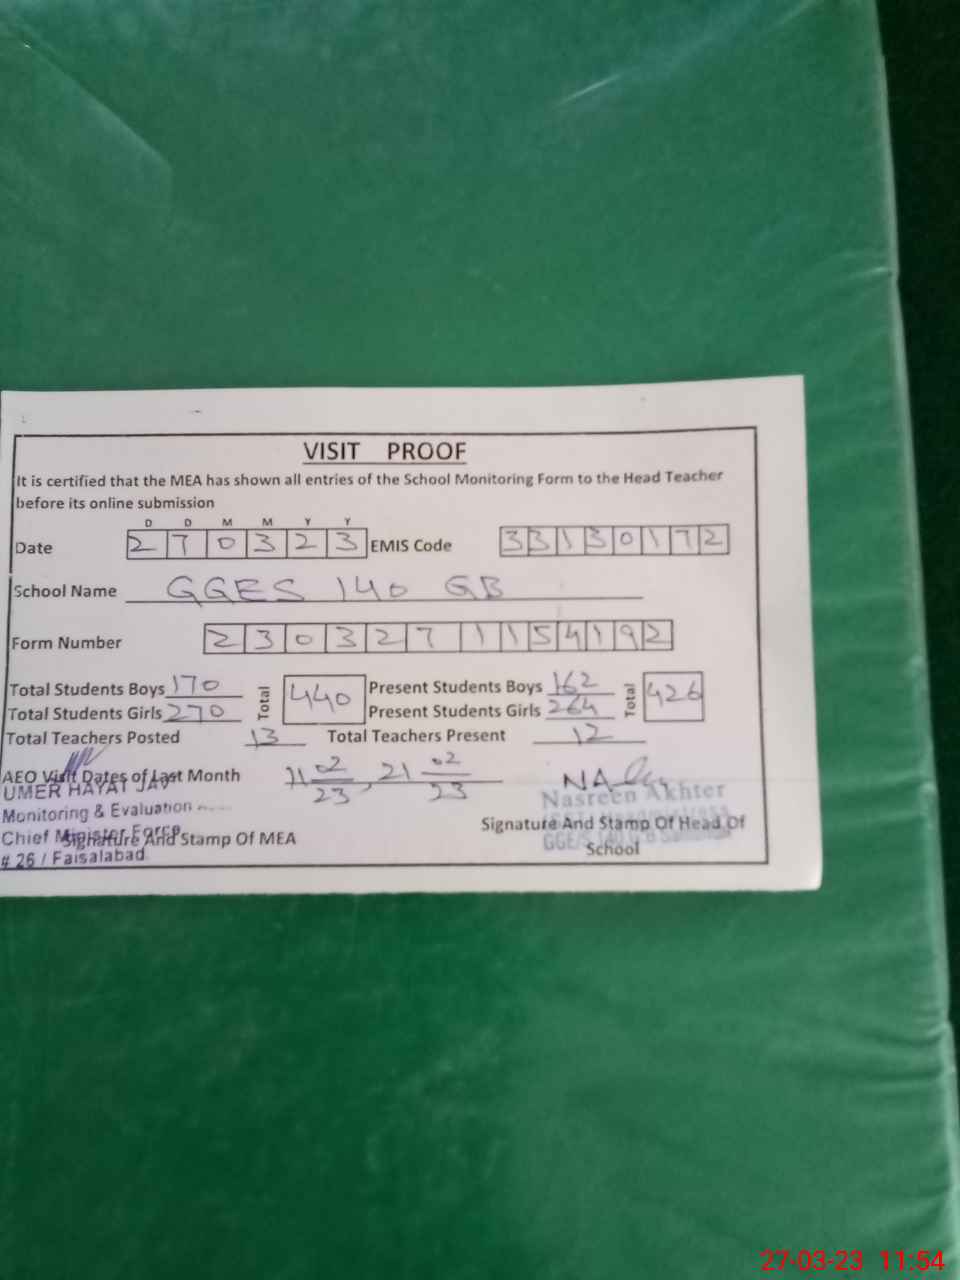 VISIT PROOF
It is certified that the MEA has shown all entries of the School Monitoring Form to the Head Teacher
before its online submission
D D M M Y Y
Date 2 7 0 3 2 3 EMIS Code 3 3 1 3 0 1 7 2
School Name GGES 140 GB
Form Number 2 3 0 3 2 7 1 1 5 4 1 9 2
Total Students Boys 170 Total 440 Present Students Boys 162 Total 426
Total Students Girls 270 Present Students Girls 264
Total Teachers Posted 13 Total Teachers Present 12
AEO Visit Dates of Last Month 11 02/23, 21 02/23
NA
UMER HAYAT
Nasreen Akhter
Monitoring & Evaluation
Chief Minister Force
Signature And Stamp Of MEA
# 26 / Faisalabad
Signature And Stamp Of Head Of
School
27-03-23 11:54